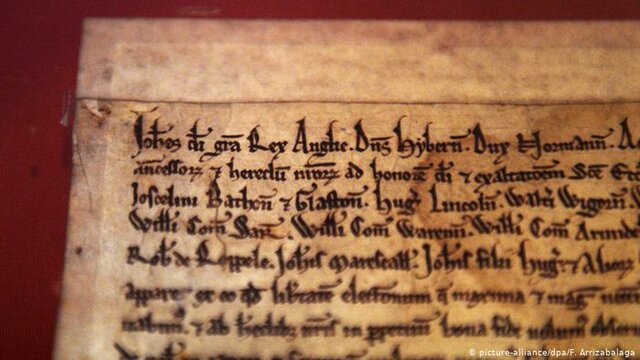 Joh̄es dī grā Rex Anglie. Dn̄s Hybern̄. Dux Normann̄. A
ancessorꝝ ⁊ heredū nr̄orꝝ ad honorē dī ⁊ exaltatōem Sc̄e
Joscelini Bathon̄ ⁊ Glaston̄. Hug̃ Lincoln̄. Walt̃i Wigorn̄.
Willī Com̄ Sar̄. Willī Com̄ Warenn̄. Willī Com̄ Arunde
Rob̄ de Roppele. Joh̄is Marescall̄. Joh̄is filii Hug̃ ⁊ Alior
appare ex eo qd̄ lib̄tatē electionum q̄ maxima ⁊ mag̃
⁊ ab in bona fide
© picture-alliance/dpa/F. Arrizabalaga